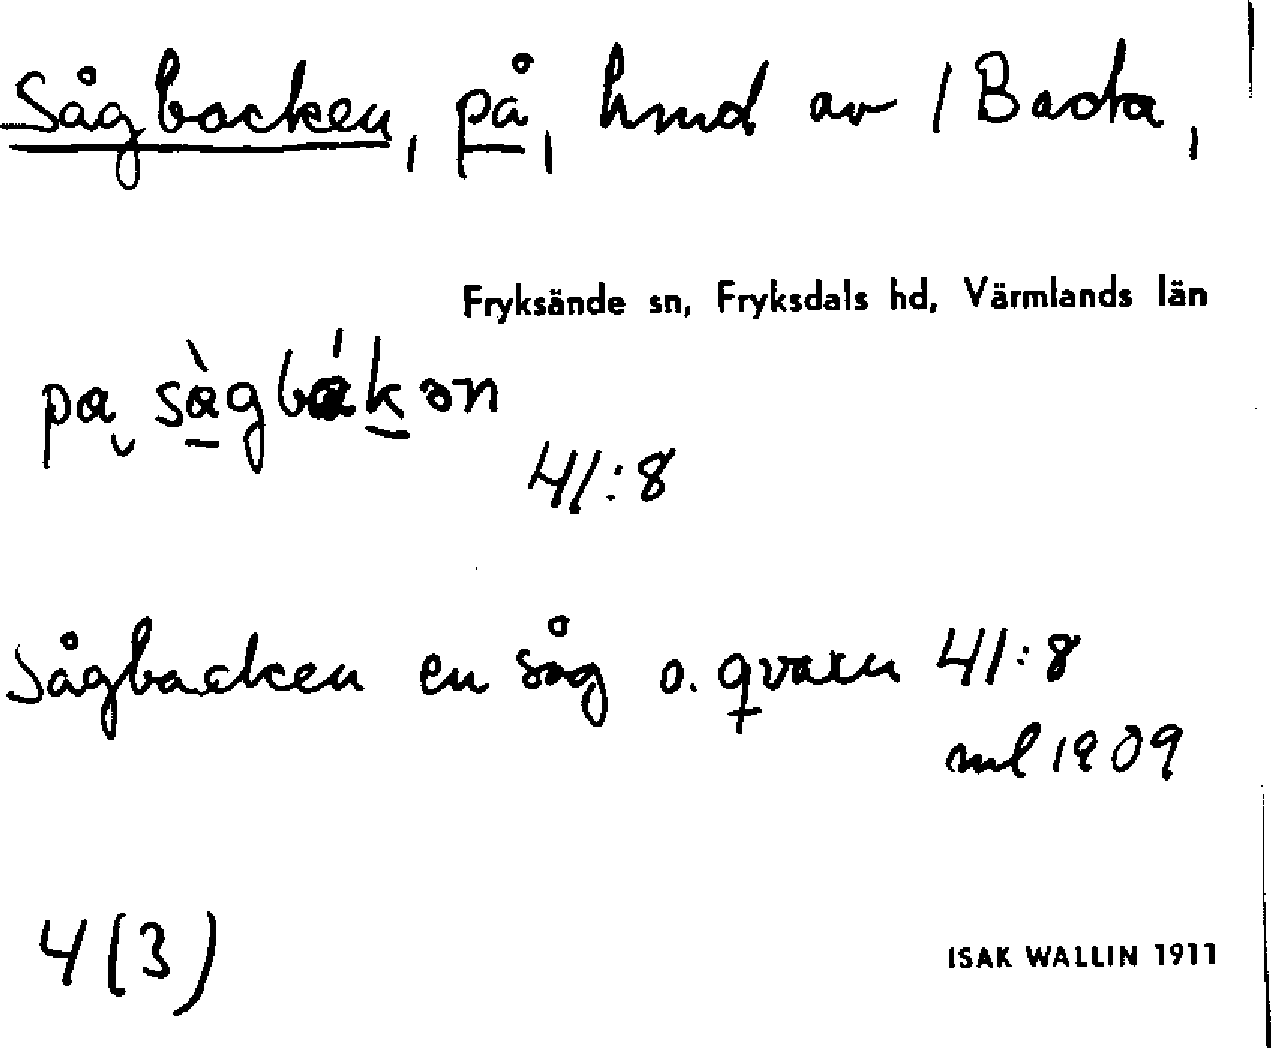 Sågbacken, på, hmd av / Basta,
Fryksände sn, Fryksdals hd, Värmlands län
pa sàgbákən
41:8
Sågbacken en såg o. qvarn 41:8
ml 1909
4 (3)
ISAK WALLIN 1911